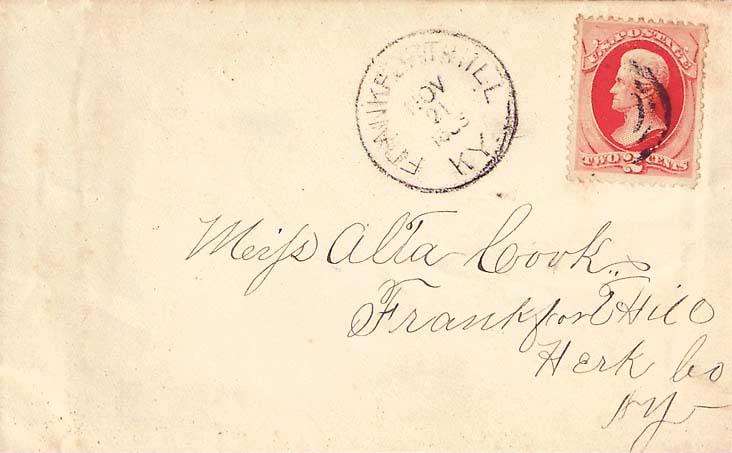 FRANKFORT HILL N.Y.
NOV
U.S. POSTAGE
TWO 2 CENTS
Miss Alta Cook
Frankfort Hill
Herk Co
NY